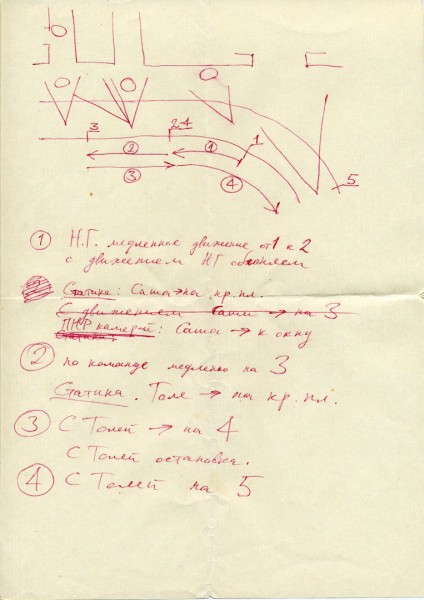 3 2-4 1
2 1
3 4 5
1 Н.Г. медленное движение от 1 к 2
с движением НГ обгоняем
Статика: Саша → на кр. пл.
С движением Саши → на 3
ПНР камерой: Саша → к окну
2 по команде медленно на 3
Статика. Толе → на кр. пл.
3 С Толей → на 4
С Толей остановка.
4 С Толей на 5